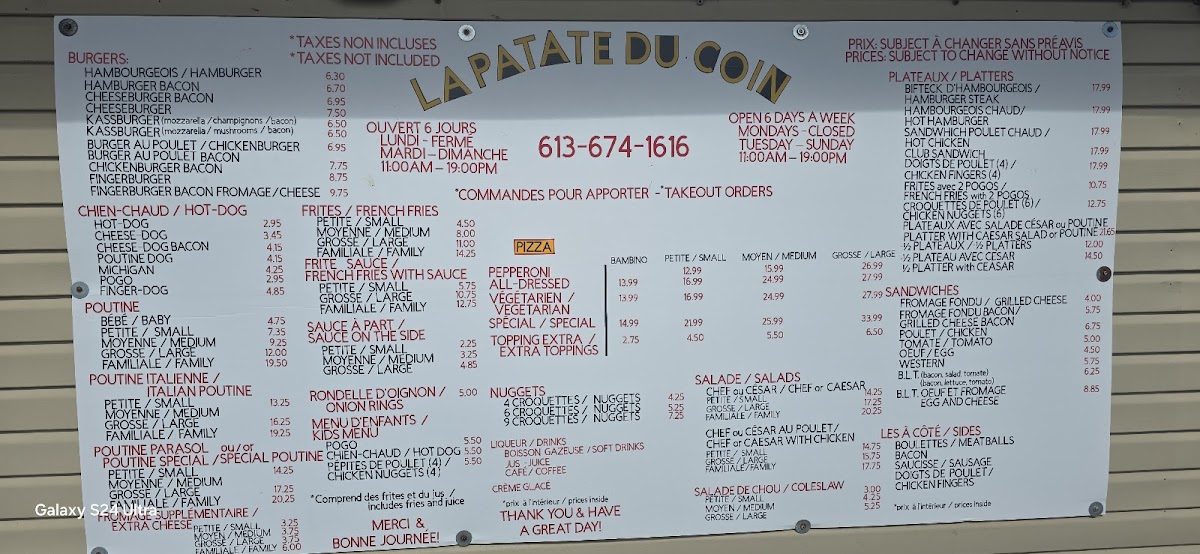 LA PATATE DU COIN
*TAXES NON INCLUSES
*TAXES NOT INCLUDED
PRIX: SUBJECT À CHANGER SANS PRÉAVIS
PRICES: SUBJECT TO CHANGE WITHOUT NOTICE
OUVERT 6 JOURS
LUNDI - FERME
MARDI – DIMANCHE
11:00AM – 19:00PM
613-674-1616
OPEN 6 DAYS A WEEK
MONDAYS -CLOSED
TUESDAY – SUNDAY
11:00AM – 19:00PM
*COMMANDES POUR APPORTER -*TAKEOUT ORDERS
BURGERS:
HAMBOURGEOIS / HAMBURGER 6.30
HAMBURGER BACON 6.70
CHEESEBURGER BACON 6.95
CHEESEBURGER 7.50
KASSBURGER (mozzarella / champignons / bacon) 6.50
KASSBURGER (mozzarella / mushrooms / bacon) 6.50
BURGER AU POULET / CHICKENBURGER 6.95
BURGER AU POULET BACON
CHICKENBURGER BACON 7.75
FINGERBURGER 8.75
FINGERBURGER BACON FROMAGE / CHEESE 9.75
CHIEN-CHAUD / HOT-DOG
HOT-DOG 2.95
CHEESE-DOG 3.45
CHEESE-DOG BACON 4.15
POUTINE DOG 4.15
MICHIGAN 4.25
POGO 2.95
FINGER-DOG 4.85
POUTINE
BÉBÉ / BABY 4.75
PETITE / SMALL 7.35
MOYENNE / MEDIUM 9.25
GROSSE / LARGE 12.00
FAMILIALE / FAMILY 19.50
POUTINE ITALIENNE /
ITALIAN POUTINE
PETITE / SMALL 13.25
MOYENNE / MEDIUM
GROSSE / LARGE 16.25
FAMILIALE / FAMILY 19.25
POUTINE PARASOL ou/or
POUTINE SPECIAL /SPECIAL POUTINE
PETITE / SMALL 14.25
MOYENNE / MEDIUM
GROSSE / LARGE 17.25
FAMILIALE / FAMILY 20.25
FROMAGE SUPPLEMENTAIRE /
EXTRA CHEESE
PETITE / SMALL 3.25
MOYEN / MEDIUM 3.75
GROSSE / LARGE 3.75
FAMILIALE / FAMILY 6.00
FRITES / FRENCH FRIES
PETITE / SMALL 4.50
MOYENNE / MEDIUM 8.00
GROSSE / LARGE 11.00
FAMILIALE / FAMILY 14.25
FRITE SAUCE /
FRENCH FRIES WITH SAUCE
PETITE / SMALL 5.75
GROSSE / LARGE 10.75
FAMILIALE / FAMILY 12.75
SAUCE À PART /
SAUCE ON THE SIDE
PETITE / SMALL 2.25
MOYENNE / MEDIUM 3.25
GROSSE / LARGE 4.85
RONDELLE D'OIGNON / 5.00
ONION RINGS
MENU D'ENFANTS /
KIDS MENU
POGO 5.50
CHIEN-CHAUD / HOT DOG 5.50
PÉPITES DE POULET (4) / 5.50
CHICKEN NUGGETS (4)
*Comprend des frites et du jus /
includes fries and juice
MERCI &
BONNE JOURNÉE!
PIZZA
BAMBINO PETITE / SMALL MOYEN / MEDIUM GROSSE / LARGE
PEPPERONI 12.99 15.99 26.99
ALL-DRESSED 13.99 16.99 24.99 27.99
VÉGÉTARIEN / 13.99 16.99 24.99 27.99
VEGETARIAN
SPÉCIAL / SPECIAL 14.99 21.99 25.99 33.99
TOPPING EXTRA / 2.75 4.50 5.50 6.50
EXTRA TOPPINGS
NUGGETS
4 CROQUETTES / NUGGETS 4.25
6 CROQUETTES / NUGGETS 5.25
9 CROQUETTES / NUGGETS 7.25
LIQUEUR / DRINKS
BOISSON GAZEUSE / SOFT DRINKS
JUS - JUICE
CAFÉ / COFFEE
CRÈME GLACE
*prix à l'intérieur / prices inside
THANK YOU & HAVE
A GREAT DAY!
SALADE / SALADS
CHEF ou CÉSAR / CHEF or CAEASAR
PETITE / SMALL 14.25
GROSSE / LARGE 17.25
FAMILIALE / FAMILY 20.25
CHEF ou CÉSAR AU POULET /
CHEF or CAESAR WITH CHICKEN
PETITE / SMALL 14.75
GROSSE / LARGE 15.75
FAMILIALE/ FAMILY 17.75
SALADE DE CHOU / COLESLAW
PETITE / SMALL 3.00
MOYEN / MEDIUM 4.25
GROSSE / LARGE 5.25
PLATEAUX / PLATTERS
BIFTECK D'HAMBOURGEOIS / 17.99
HAMBURGER STEAK
HAMBOURGEOIS CHAUD / 17.99
HOT HAMBURGER
SANDWHICH POULET CHAUD / 17.99
HOT CHICKEN
CLUB SANDWICH 17.99
DOIGTS DE POULET (4) / 17.99
CHICKEN FINGERS (4)
FRITES avec 2 POGOS / 10.75
FRENCH FRIES with 2 POGOS
CROQUETTES DE POULET (6) / 12.75
CHICKEN NUGGETS (6)
PLATEAUX AVEC SALADE CÉSAR ou POUTINE
PLATTER WITH CAESAR SALAD or POUTINE 21.65
½ PLATEAUX / ½ PLATTERS 12.00
½ PLATEAU AVEC CESAR 14.50
½ PLATTER with CEASAR
SANDWICHES
FROMAGE FONDU / GRILLED CHEESE 4.00
FROMAGE FONDU BACON / 5.75
GRILLED CHEESE BACON
POULET / CHICKEN 6.75
TOMATE / TOMATO 5.00
OEUF / EGG 4.50
WESTERN 5.75
B.L.T. (bacon, salad, tomate) 6.25
(bacon, lettuce, tomato)
B.L.T. OEUF ET FROMAGE 8.85
EGG AND CHEESE
LES À CÔTÉ / SIDES
BOULETTES / MEATBALLS
BACON
SAUCISSE / SAUSAGE
DOIGTS DE POULET /
CHICKEN FINGERS
*prix à l'intérieur / prices inside
Galaxy S24 Ultra